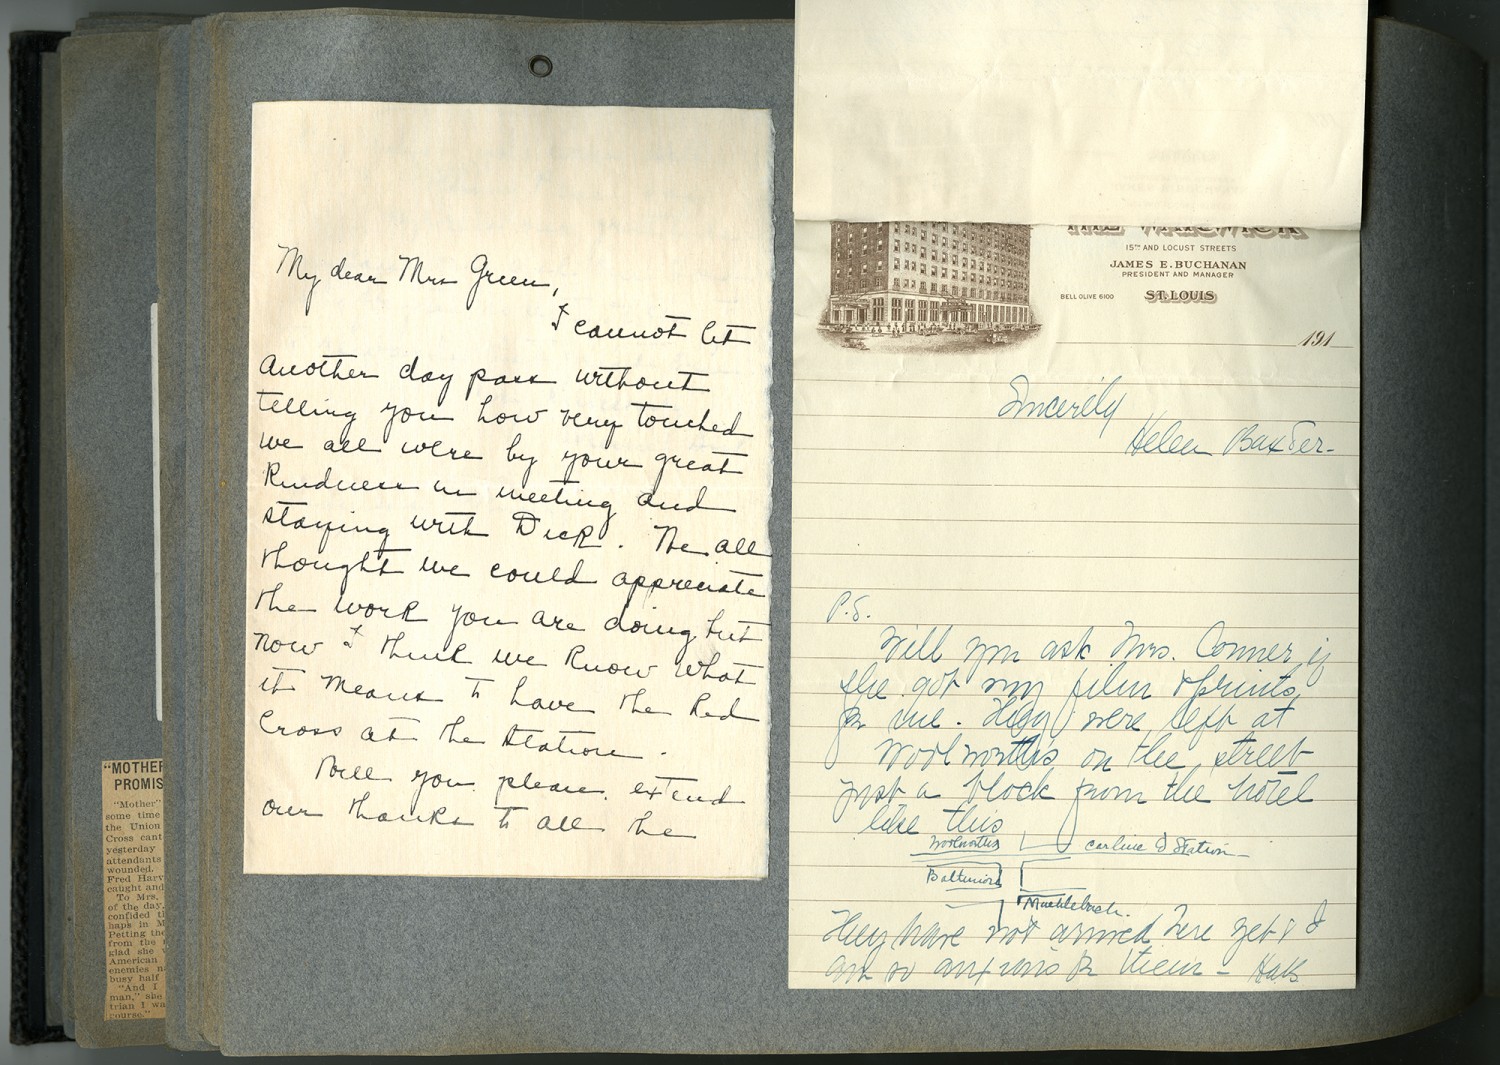 My dear Mrs Green,
I cannot let
another day pass without
telling you how very touched
we all were by your great
kindness in meeting and
staying with Dick. We all
thought we could appreciate
the work you are doing but
now I think we know what
it means to have the Red
Cross at the station.
Will you please extend
our thanks to all the
THE WARWICK
15TH AND LOCUST STREETS
JAMES E. BUCHANAN
PRESIDENT AND MANAGER
BELL OLIVE 6100
ST. LOUIS
191
Sincerely
Helen Baxter-
P.S.
Will you ask Mrs. Conner if
she got my film & prints,
for me. They were left at
Woolworths on the street
just a block from the hotel
like this
Woolworths
carline to Station
Baltimore
Muehlebach.
They have not arrived here yet & I
am so anxious for them -
"MOTHER
PROMIS
"Mother"
some time
the Union
Cross cant
yesterday
attendants
wounded.
Fred Harv
caught and
To Mrs.
of the day,
confided th
haps in M
Petting the
from the
glad she
American
enemies n
busy half
"And I
man," she
trian I wa
course."